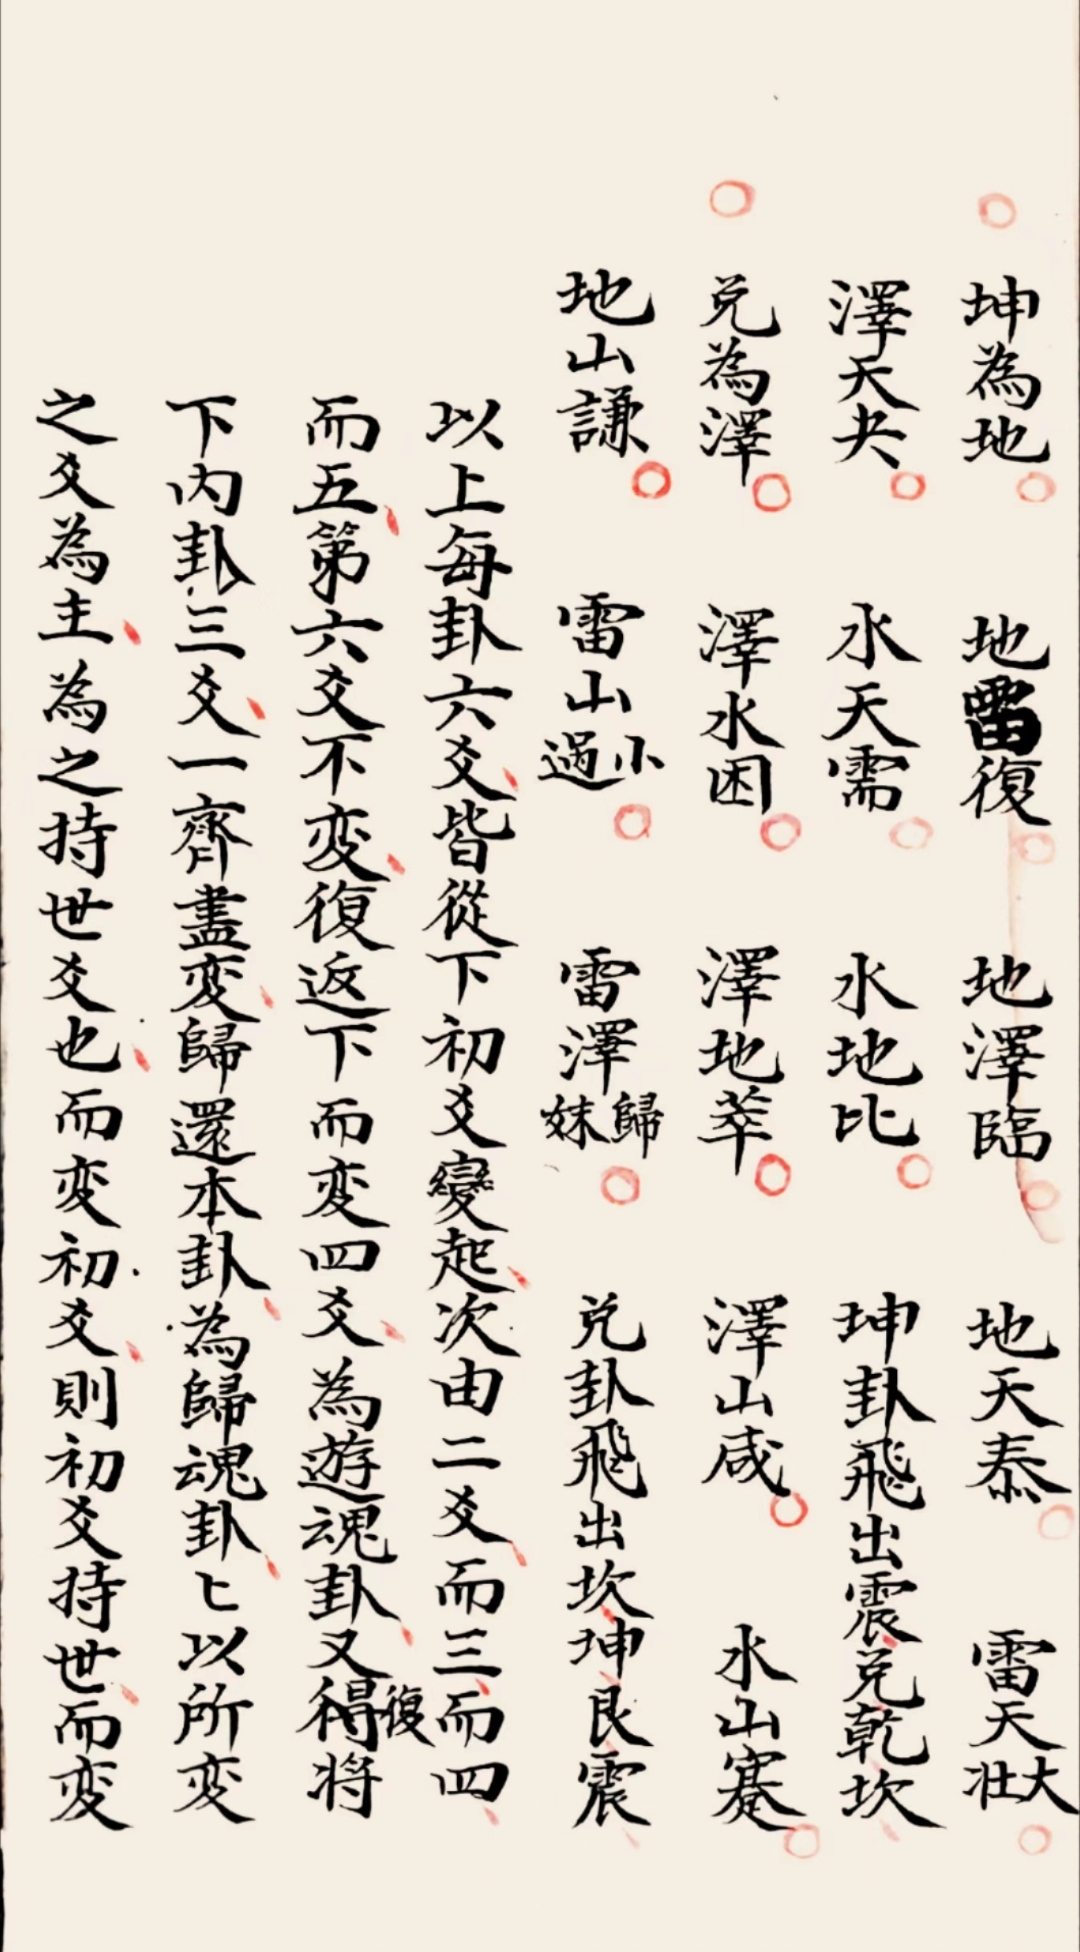 坤為地 地雷復 地澤臨 地天泰 雷天大壯
澤天夬 水天需 水地比 坤卦飛出震兌乾坎
兌為澤 澤水困 澤地萃 澤山咸 水山蹇
地山謙 雷山小過 雷澤歸妹 兌卦飛出坎坤艮震
以上每卦六爻皆從下初爻變起次由二爻而三而四
而五第六爻不変復返下而変四爻為遊魂卦又得復将
下內卦三爻一齊盡変歸還本卦為歸魂卦匕以所変
之爻為主為之持世爻也而変初爻則初爻持世而変